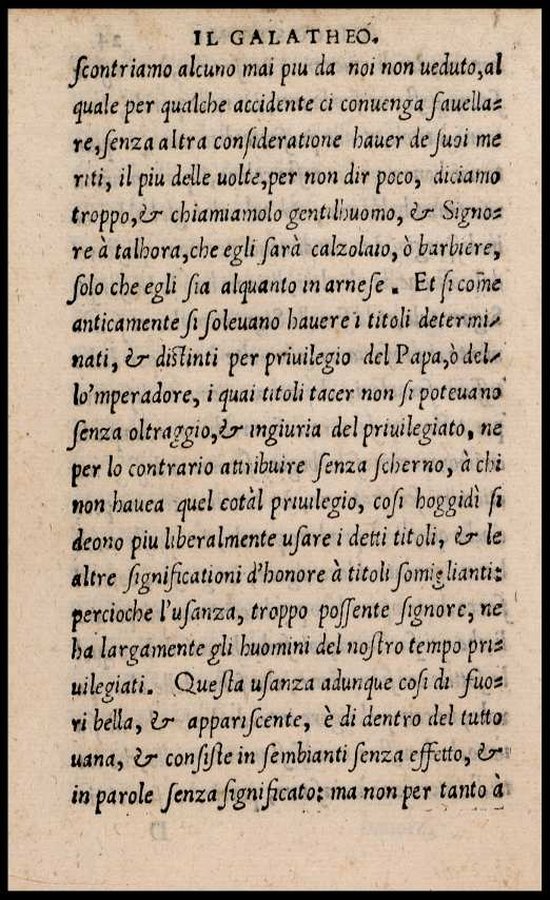 IL GALATHEO.
ſcontriamo alcuno mai piu da noi non ueduto,al
quale per qualche accidente ci conuenga fauella=
re,ſenza altra conſideratione hauer de ſuoi me
riti, il piu delle uolte,per non dir poco, diciamo
troppo,& chiamiamolo gentilhuomo, & Signo=
re à talhora,che egli ſarà calzolaio, ò barbiere,
ſolo che egli ſia alquanto in arneſe. Et ſi come
anticamente ſi ſoleuano hauere i titoli determi=
nati, & diſtinti per priuilegio del Papa,ò del=
lo'mperadore, i quai titoli tacer non ſi poteuano
ſenza oltraggio,& ingiuria del priuilegiato, ne
per lo contrario attribuire ſenza ſcherno, à chi
non hauea quel cotàl priuilegio, coſi hoggidì ſi
deono piu liberalmente uſare i detti titoli, & le
altre ſignificationi d'honore à titoli ſomiglianti:
percioche l'uſanza, troppo poſſente ſignore, ne
ha largamente gli huomini del noſtro tempo pri=
uilegiati. Queſta uſanza adunque coſi di fuo=
ri bella, & appariſcente, è di dentro del tutto
uana, & conſiſte in ſembianti ſenza effetto, &
in parole ſenza ſignificato: ma non per tanto à